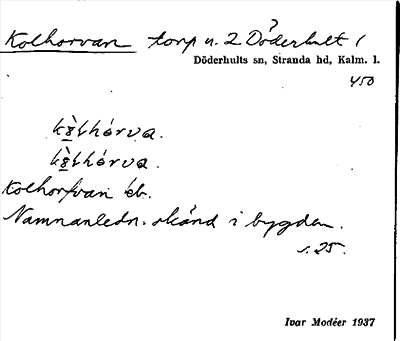 Kolhorvan torp u. 2 Döderhult 1
Döderhults sn, Stranda hd, Kalm. l.
450
kò̤lhórva.
kò̤lhórva.
Kolhorfvan éb.
Namnanledn. okänd i bygden.
s. 25.
Ivar Modéer 1937